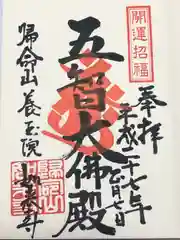 開運招福
奉拝
平成二十七年
正月七日
五智大佛殿
帰命山養玉院
如来寺